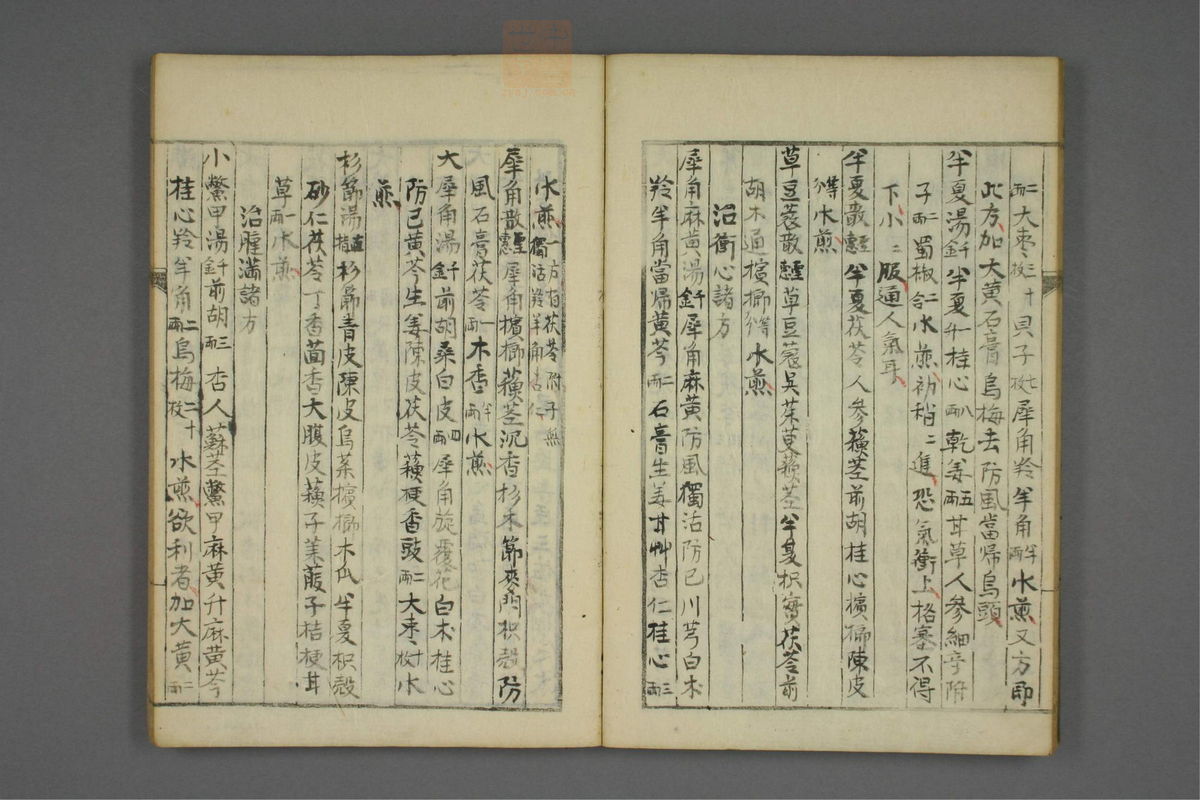 二兩大枣三枚十貝子七枚犀角羚羊角半兩水煎又方即
此方加大黄石膏烏梅去防風當帰烏頭
半夏湯千釒半夏升桂心八兩乾姜五兩甘草人參細辛附
子二兩蜀椒二合水煎初稍二進恐氣衝上格塞不得
下小二服通人氣耳
半夏散聖惠半夏茯苓人參蘓莖前胡桂心檳榔陳皮
等分水煎
草豆蔲散聖惠草豆蔲吳茱萸蘓莖半夏枳實茯苓前
胡木通檳榔等分水煎
治衝心諸方
犀角麻黄湯千釒犀角麻黄防風獨活防已川芎白朮
羚羊角當帰黄芩二兩石膏生姜甘艸杏仁桂心三兩
水煎一方有茯苓附子無
獨活羚羊角杏仁
犀角散聖惠犀角檳榔蘓莖沉香杉木節麥門枳殼防
風石膏茯苓一兩木香半兩水煎
大犀角湯千釒前胡桑白皮四兩犀角旋覆花白朮桂心
防已黄芩生姜陳皮茯苓蘓梗香豉二兩大枣十枚水
煎
杉節湯直指杉節青皮陳皮烏藥檳榔木瓜半夏枳殼
砂仁茯苓丁香茴香大腹皮蘓子萊菔子桔梗甘
草一兩水煎
治腫滿諸方
小鱉甲湯千釒前胡三兩杏人蘓莖鱉甲麻黄升麻黄芩
桂心羚羊角二兩烏梅二十枚水煎欲利者加大黄二兩